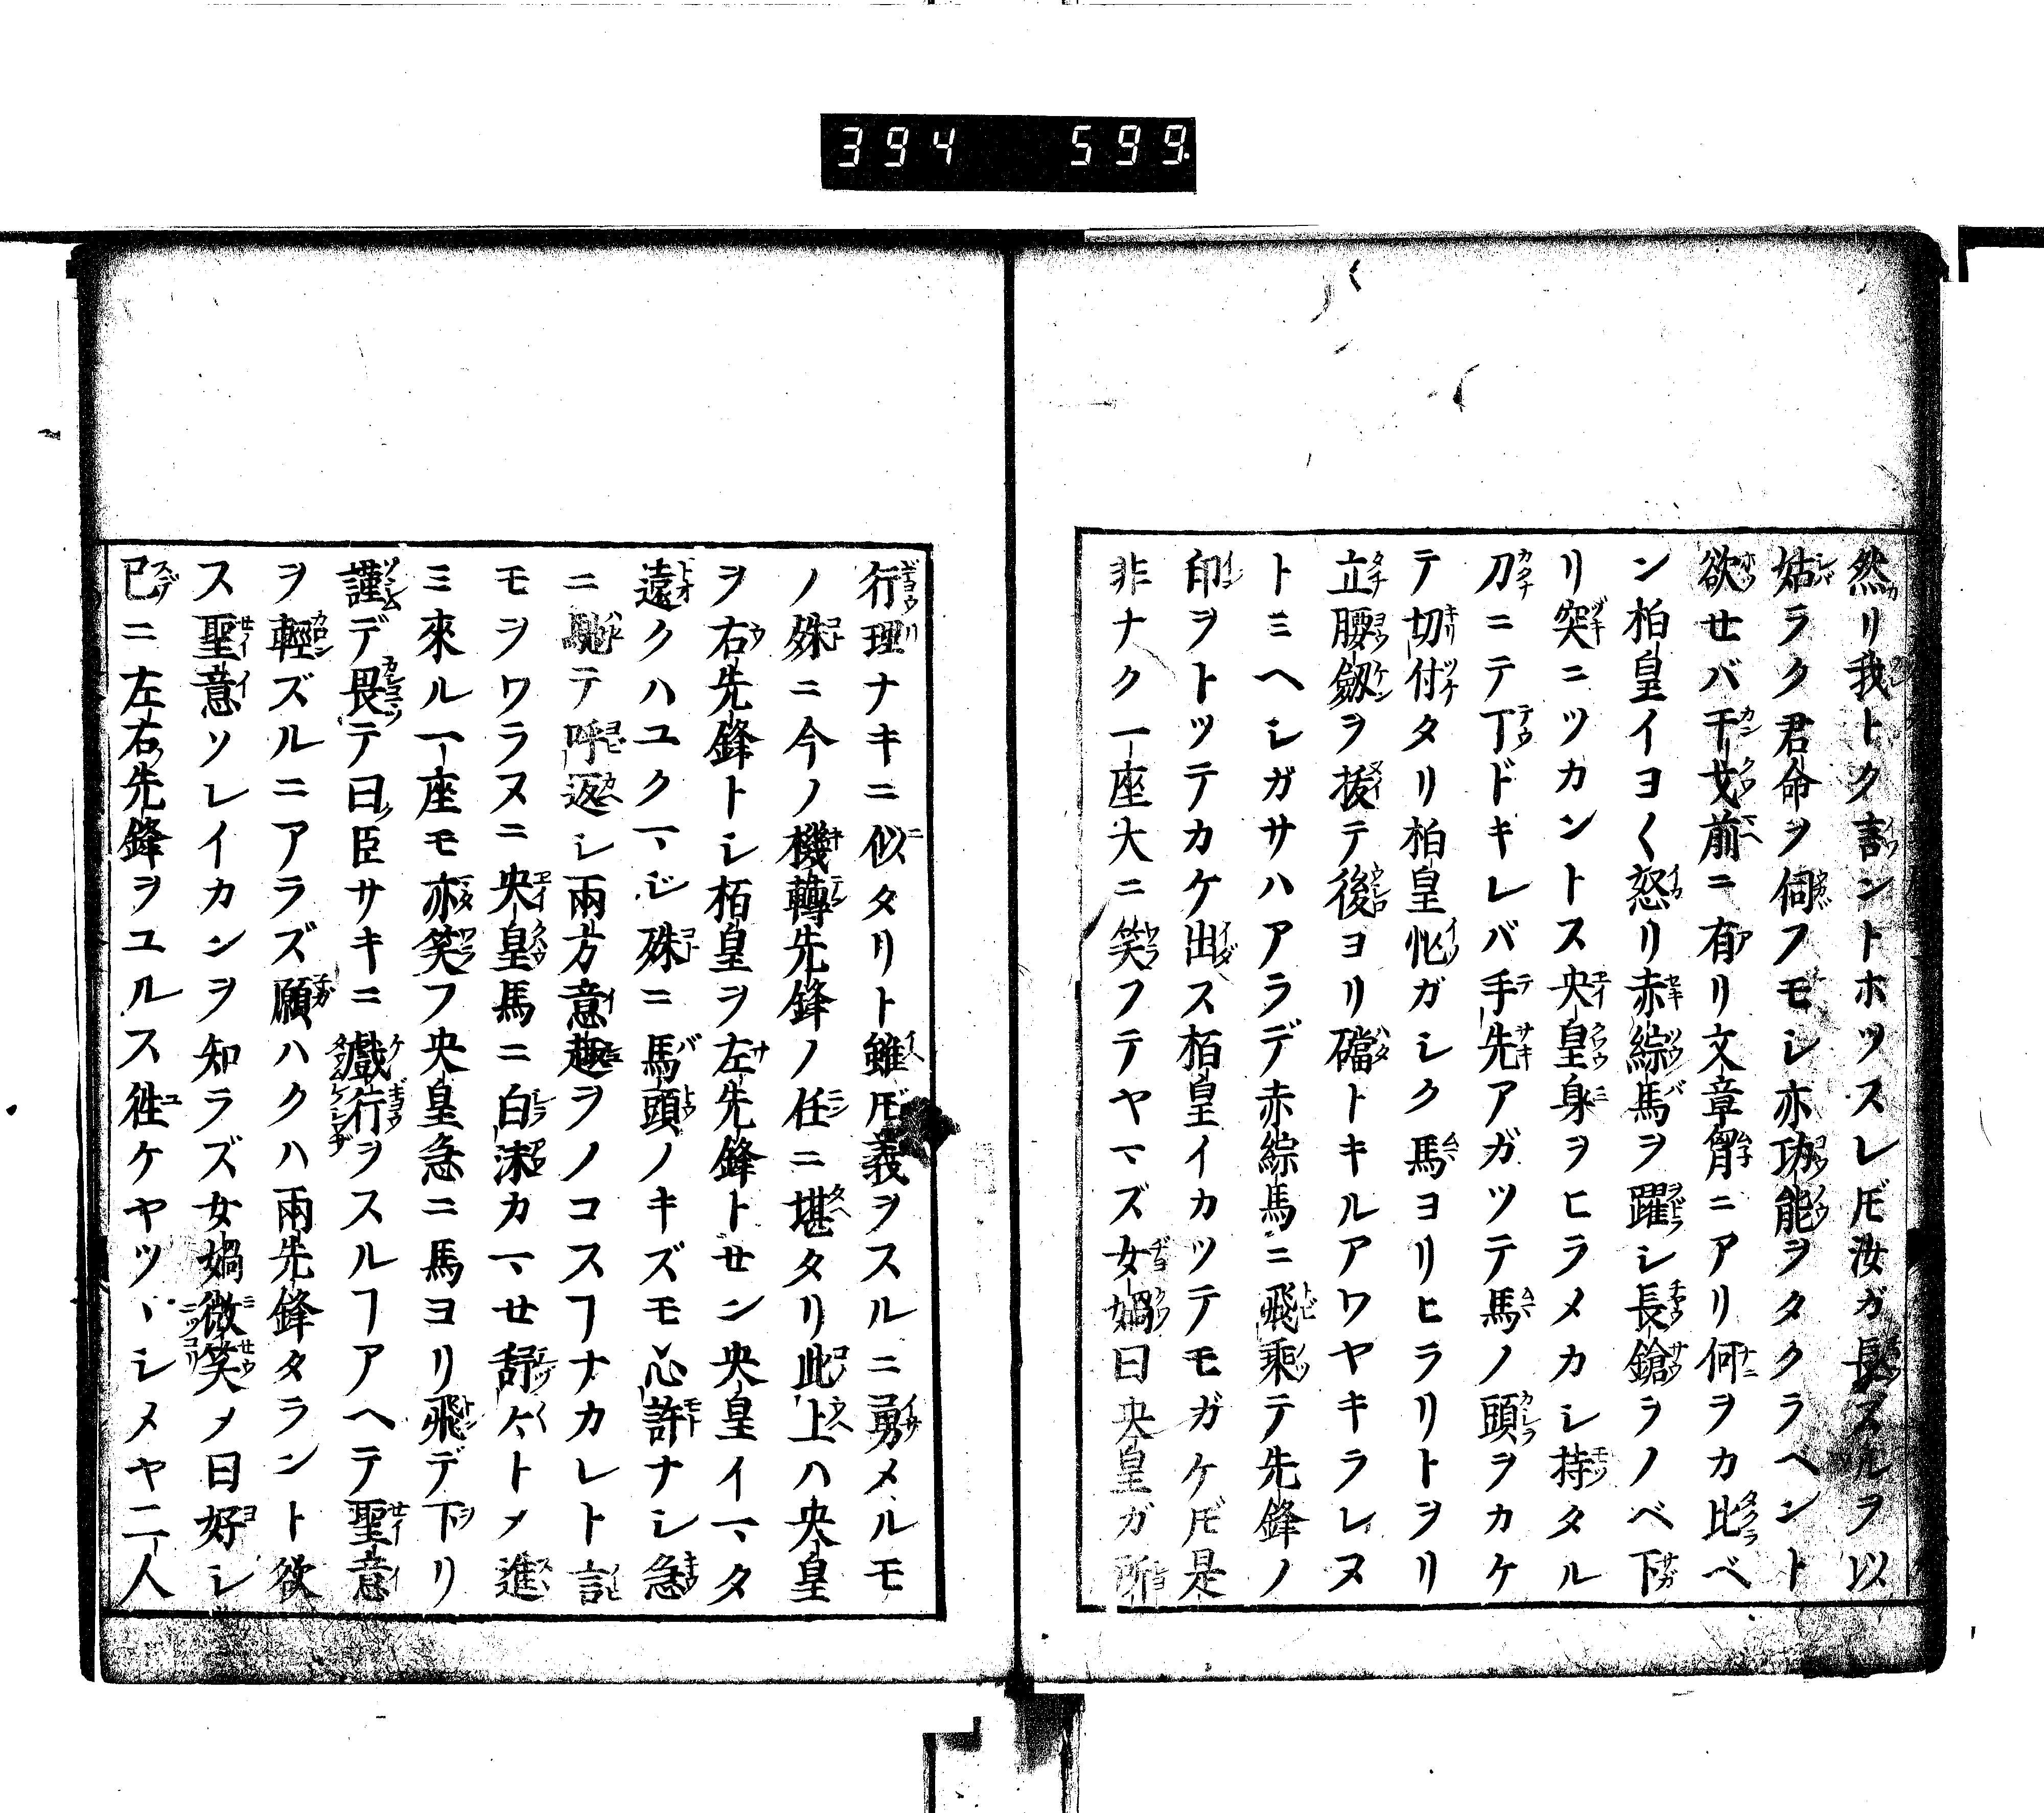 394 599
然リ我トク言ントホツスレ𪜈汝ガ長スルヲ以
姑ラク君命ヲ伺フモシ亦功能ヲタクラヘント
欲せバ干戈前ニ有リ文章胷ニアリ何ヲカ比ベ
ン柏皇イヨ〱怒リ赤綜馬ヲ躍シ長鎗ヲノベ下
リ突ニツカントス央皇身ヲヒラメカシ持タル
刀ニテ丁ドキレバ手先アガツテ馬ノ頭ヲカケ
テ切付タリ柏皇忙ガシク馬ヨリヒラリトヲリ
立腰劔ヲ拔テ後ヨリ礑トキルアワヤキラレヌ
トミヘシガサハアラデ赤綜馬ニ飛乘テ先鋒ノ
印ヲトツテカケ出ス栢皇イカツテモガケ𪜈是
非ナク一座大ニ笑フテヤヽズ女媧曰央皇ガ所
行理ナキニ似タリト雖𪜈義ヲスルニ勇メルモ
ノ殊ニ今ノ機轉先鋒ノ任ニ堪タリ此上ハ央皇
ヲ右先鋒トシ栢皇ヲ左先鋒トせン央皇イマヽタ
遠クハユクマヽジ殊ニ馬頭ノキズモ心許ナシ急
ニ馳テ呼返シ兩方意趣ヲノコスヿナカレト言
モヲワラヌニ央皇馬ニ白沫カマヽせ靜々トメ進
ミ來ル一座モ亦笑フ央皇急ニ馬ヨリ飛デ下リ
謹デ畏テ曰臣サキニ戲行ヲスルヿアヘテ聖意
ヲ輕ズルニアラズ願ハクハ兩先鋒タラント欲
ス聖意ソレイカンヲ知ラズ女媧微笑メ曰好シ
已ニ左右先鋒ヲユルス徃ケヤツヽシメヤ二人